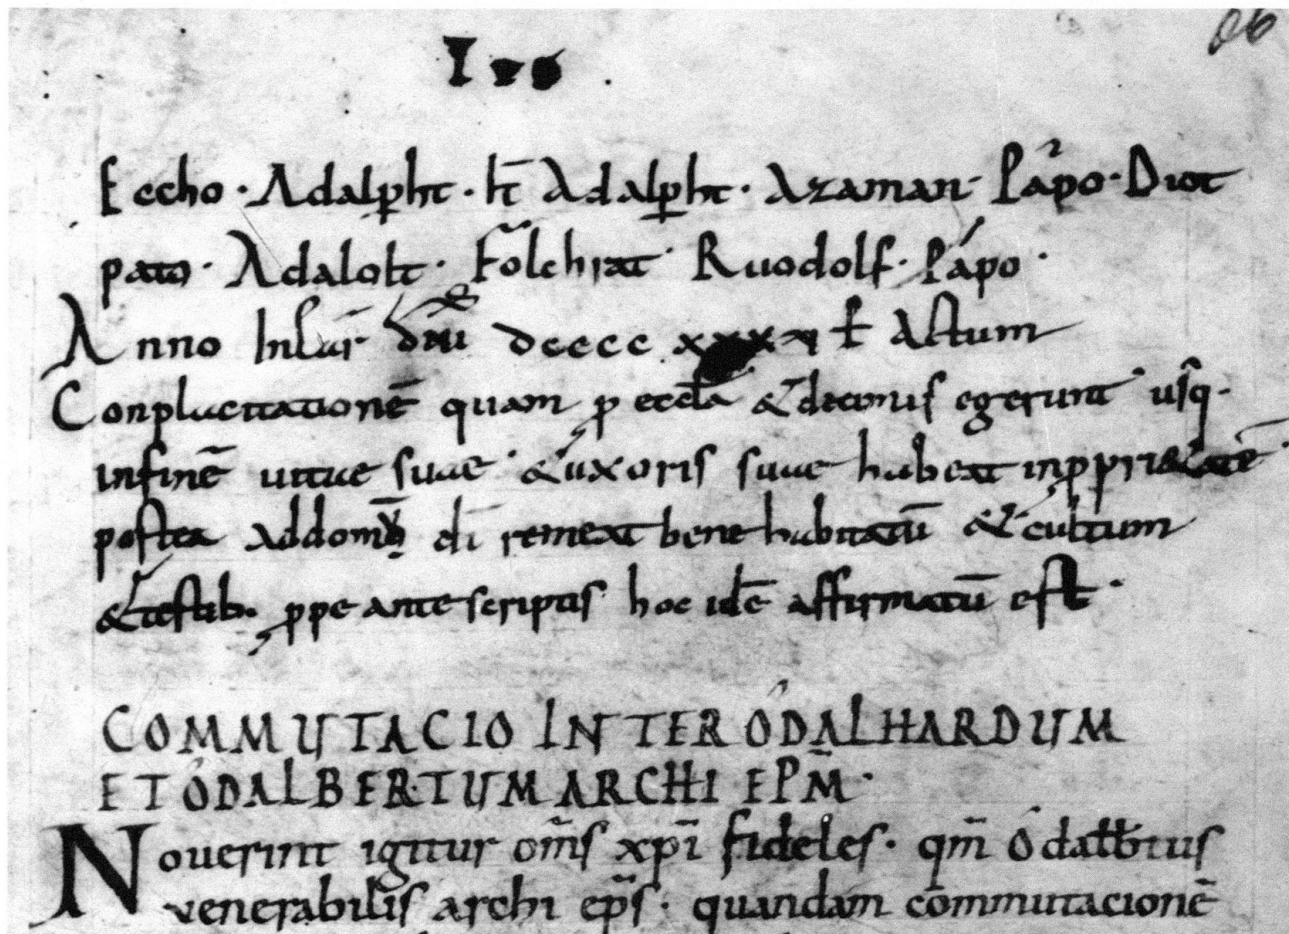 06
Eccho · Adalp̄ht · It̄ Adalp̄ht · Azaman · Pápo · Diot
pato · Adalolt · Fõlchrat · Ruodolf · Pápo ·
Anno Incar̄ dn̄i dcccc xxxv f̄ Actum
Conplacitationē quam p eccl̄a &decimis egerunt usq̄·
infinē uitae suae &uxoris suae habeat inp̄pri&atē
postea addomū di remeat bene habitatū &cultum
&testib· p̄pe ante scriptis hoc idē affirmatū est ·
COMMUTACIO INTER ÓDALHARDUM
ET ÓDALBERTUM ARCHI EPM̄ ·
Nouerint igitur om̄s xp̄i fideles · qm̄ Ódalb̄tus
venerabilis archi ep̄s · quandam cōmmutacionē